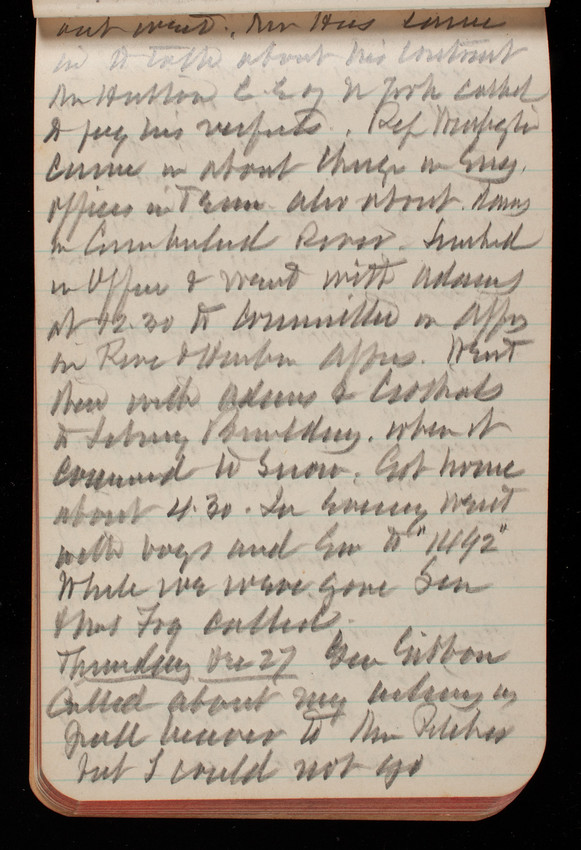 out west. Mr Hus came
in & talk about his contract
Mr Hutton C E of N York called
to pay his respects. Rep
came in about change in Eng.
offices in Tenn also about dams
in Cumberland River. Lunched
in Office & went with Adams
at 12.30 to Committee on Apps
on River & Harbor Appns. Went
then with Adams &
to Library Building. when it
commenced to snow. Got home
about 4.30. In Evening went
with boys and Em to "1492"
While we were gone Gen
& Mrs Fog called.
Thursday Dec 27 Gen Gibbon
Called about my acting as
pall bearer to Mr
but I could not go